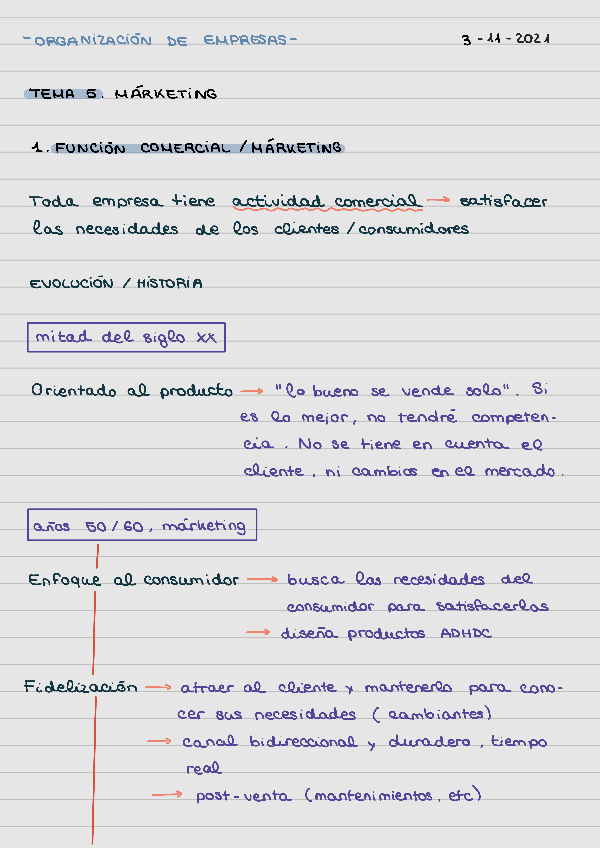 -ORGANIZACIÓN DE EMPRESAS- 3-11-2021
TEMA 5. MÁRKETING
1. FUNCIÓN COMERCIAL / MÁRKETING
Toda empresa tiene actividad comercial → satisfacer
las necesidades de los clientes / consumidores
EVOLUCIÓN / HISTORIA
mitad del siglo XX
Orientado al producto → "lo bueno se vende solo". Si
es lo mejor, no tendré competen-
cia. No se tiene en cuenta el
cliente, ni cambios en el mercado.
años 50/60, márketing
Enfoque al consumidor → busca las necesidades del
consumidor para satisfacerlas
→ diseña productos ADHDC
Fidelización → atraer al cliente y mantenerlo para cono-
cer sus necesidades (cambiantes)
→ canal bidireccional y duradero, tiempo
real
→ post-venta (mantenimientos, etc)